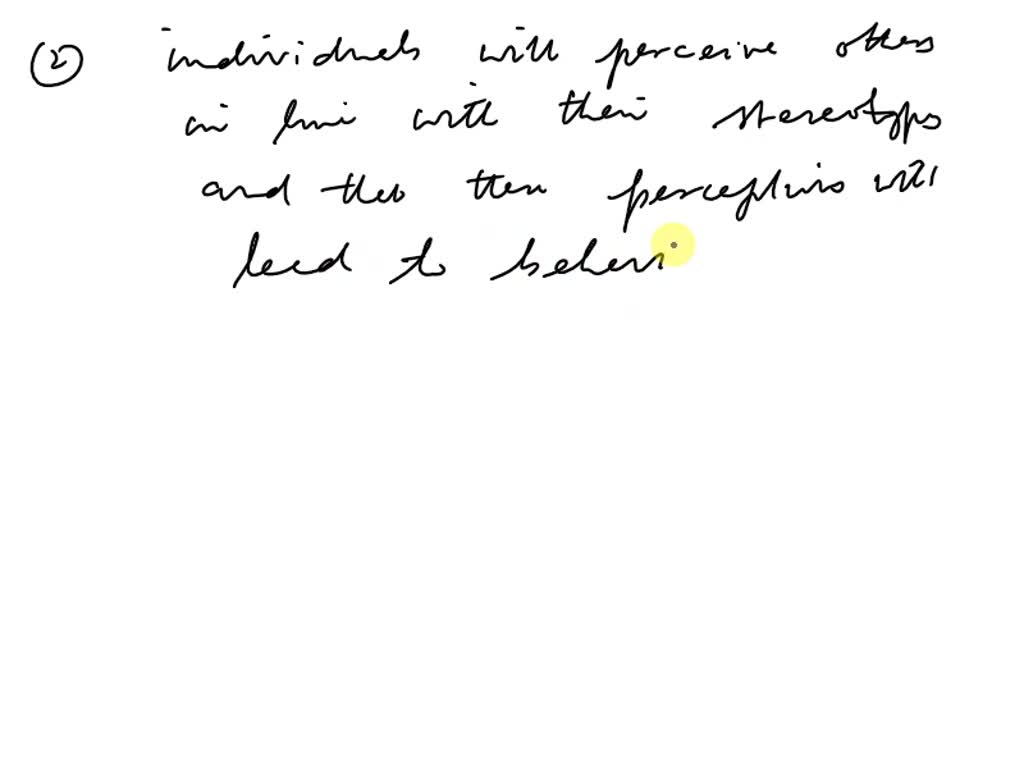 ② individuals will perceive others
in line with their stereotypes
and that their perceptions will
lead to behavi